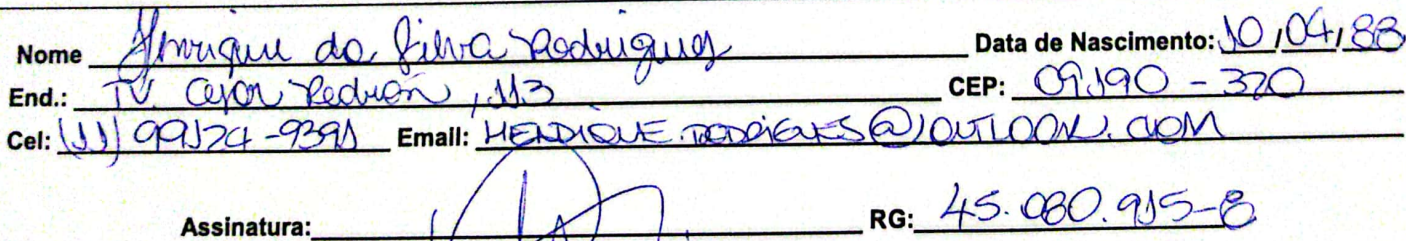 Nome Henrique da Silva Rodrigues Data de Nascimento: 10/04/88
End.: TV. Cesar Pedrón, 113 CEP: 09190-320
Cel: (11) 99124-9391 Email: HENRIQUE.RODRIGUES@OUTLOOK.COM
Assinatura: RG: 45.080.915-8